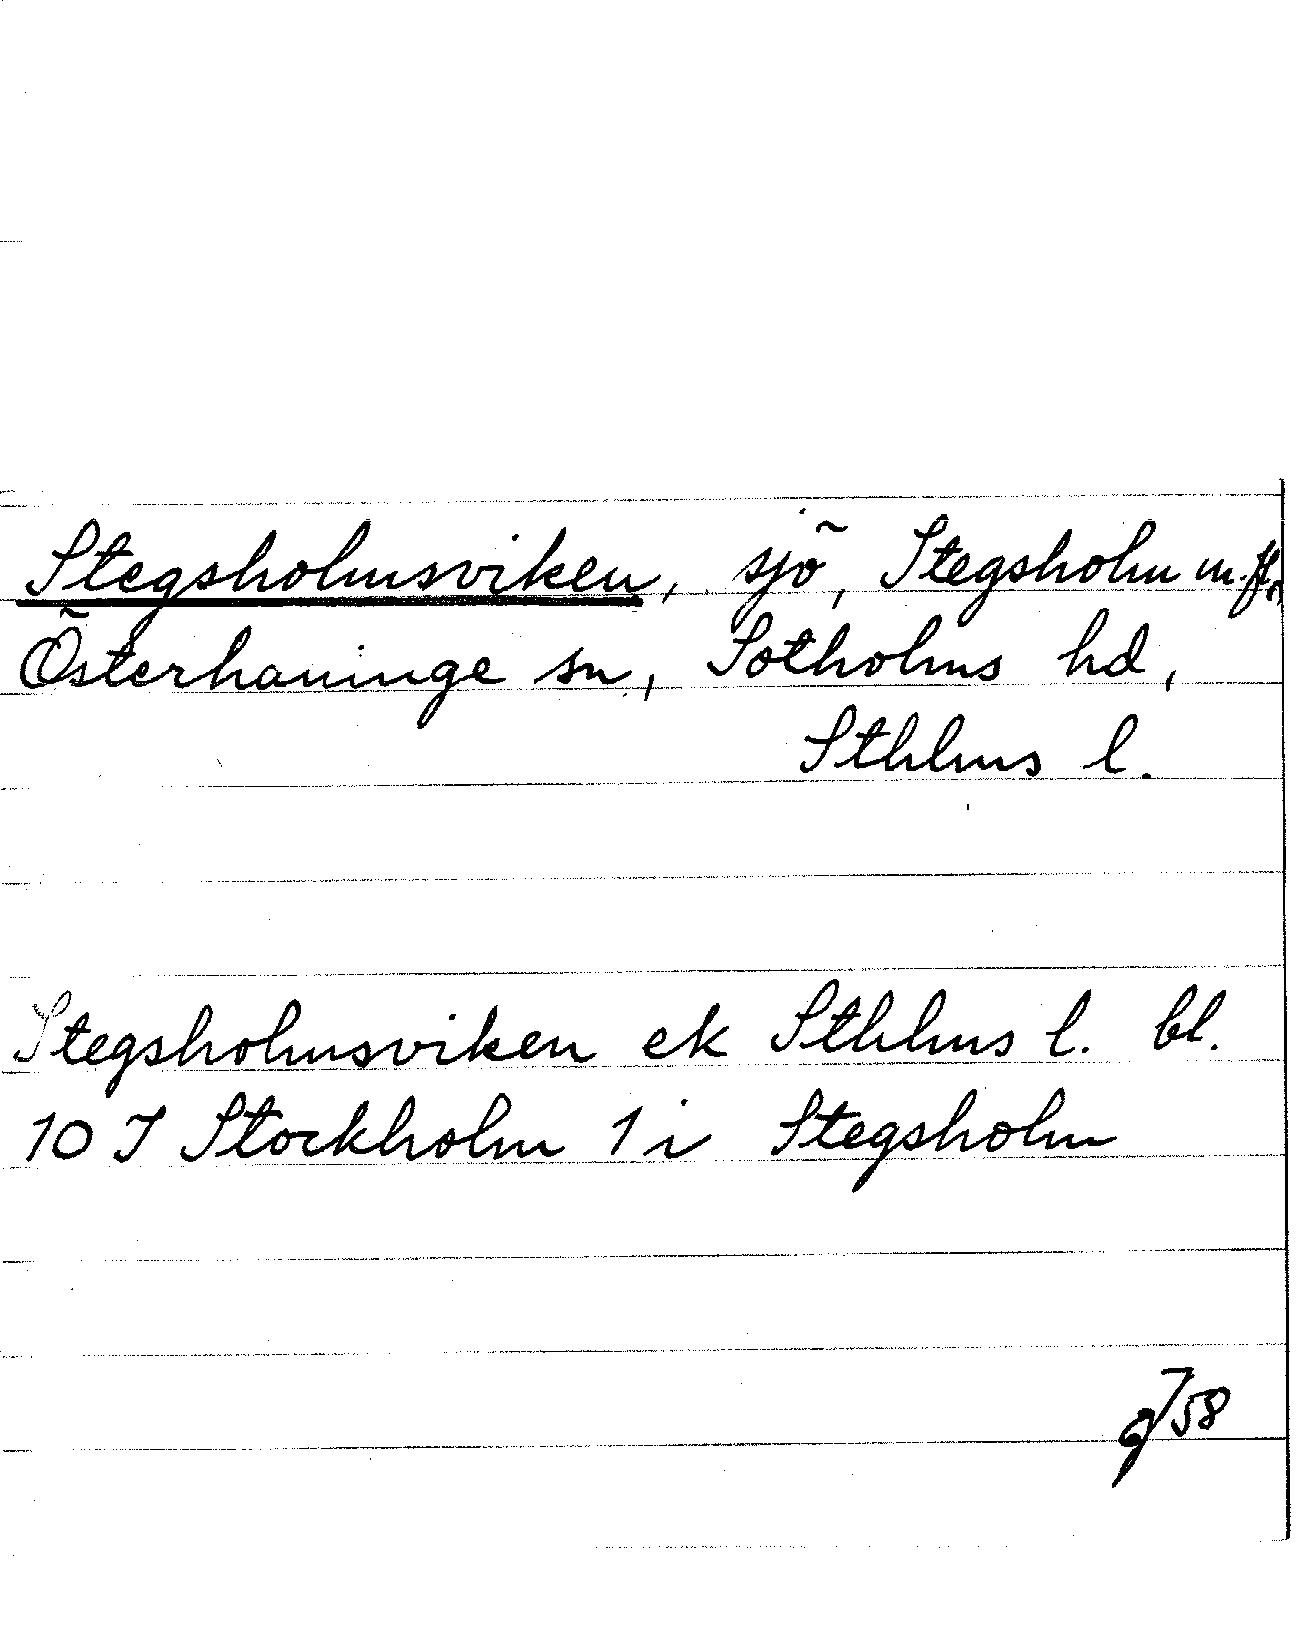 Stegsholmsviken, sjö, Stegsholm m.fl.,
Österhaninge sn, Sotholms hd,
Sthlms l.
Stegsholmsviken ek Sthlms l. bl.
10 I Stockholm 1 i Stegsholm
58